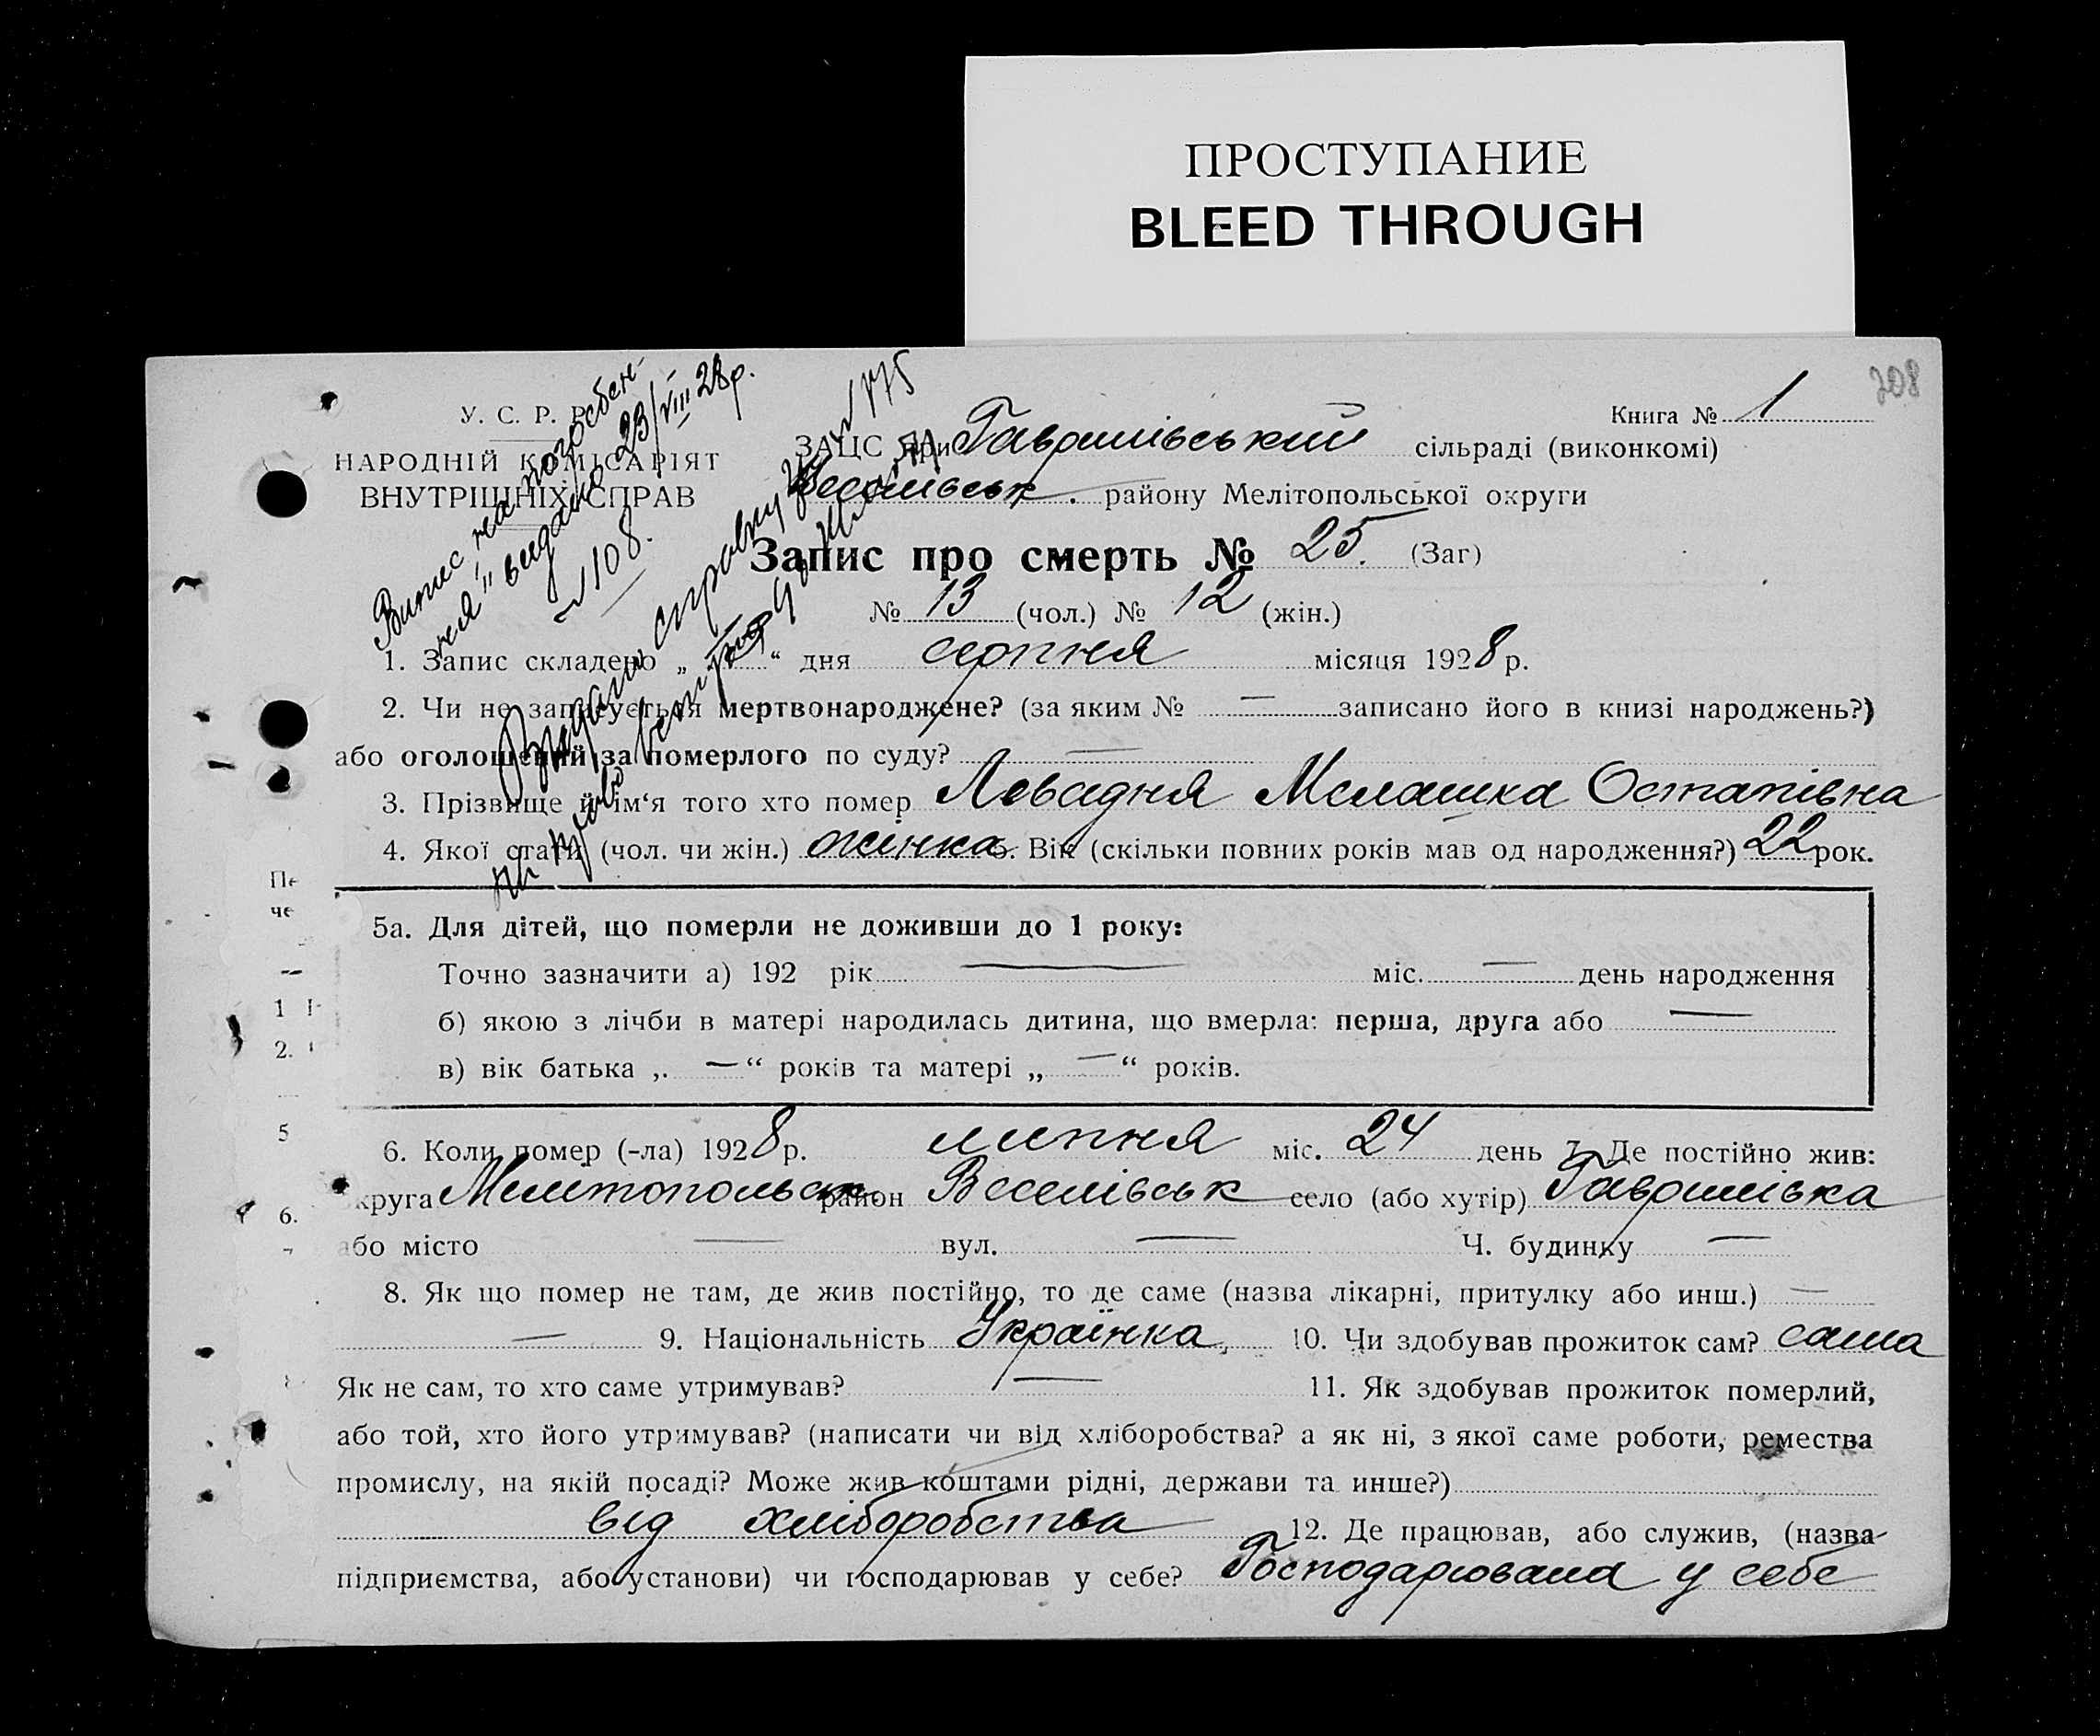 ПРОСТУПАНИЕ
BLEED THROUGH
208
У. С. Р. Р.
НАРОДНІЙ КОМІСАРІЯТ
ВНУТРІШНІХ СПРАВ
Книга № 1
ЗАЦС при Гаврилівський сільраді (виконкомі)
Веселівськ. району Мелітопольської округи
Запис про смерть № 25. (Заг)
№ 13 (чол.) № 12 (жін.)
видано 23/VIII 28 р.
№ 108.
Видано справку
1. Запис складено „ “ дня серпня місяця 1928 р.
2. Чи не записується мертвонароджене? (за яким № — записано його в книзі народжень?)
або оголошений за померлого по суду? —
3. Прізвище й ім‘я того хто помер Левадня Мелашка Остапівна
4. Якої стати (чол. чи жін.) жінка. Вік (скільки повних років мав од народження?) 22 рок.
5а. Для дітей, що померли не доживши до 1 року:
Точно зазначити а) 192 рік — міс. — день народження
б) якою з лічби в матері народилась дитина, що вмерла: перша, друга або —
в) вік батька „ — “ років та матері „ — “ років.
6. Коли помер (-ла) 1928 р. липня міс. 24 день 7. Де постійно жив:
округа Мелітопольськ район Веселівськ село (або хутір) Гаврилівка
або місто — вул. — Ч. будинку —
8. Як що помер не там, де жив постійно, то де саме (назва лікарні, притулку або инш.) —
— 9. Національність Українка, 10. Чи здобував прожиток сам? сама
Як не сам, то хто саме утримував? — 11. Як здобував прожиток померлий,
або той, хто його утримував? (написати чи від хліборобства? а як ні, з якої саме роботи, ремества
промислу, на якій посаді? Може жив коштами рідні, держави та инше?)
від хліборобства 12. Де працював, або служив, (назва
підприємства, або установи) чи господарював у себе? Господарювала у себе